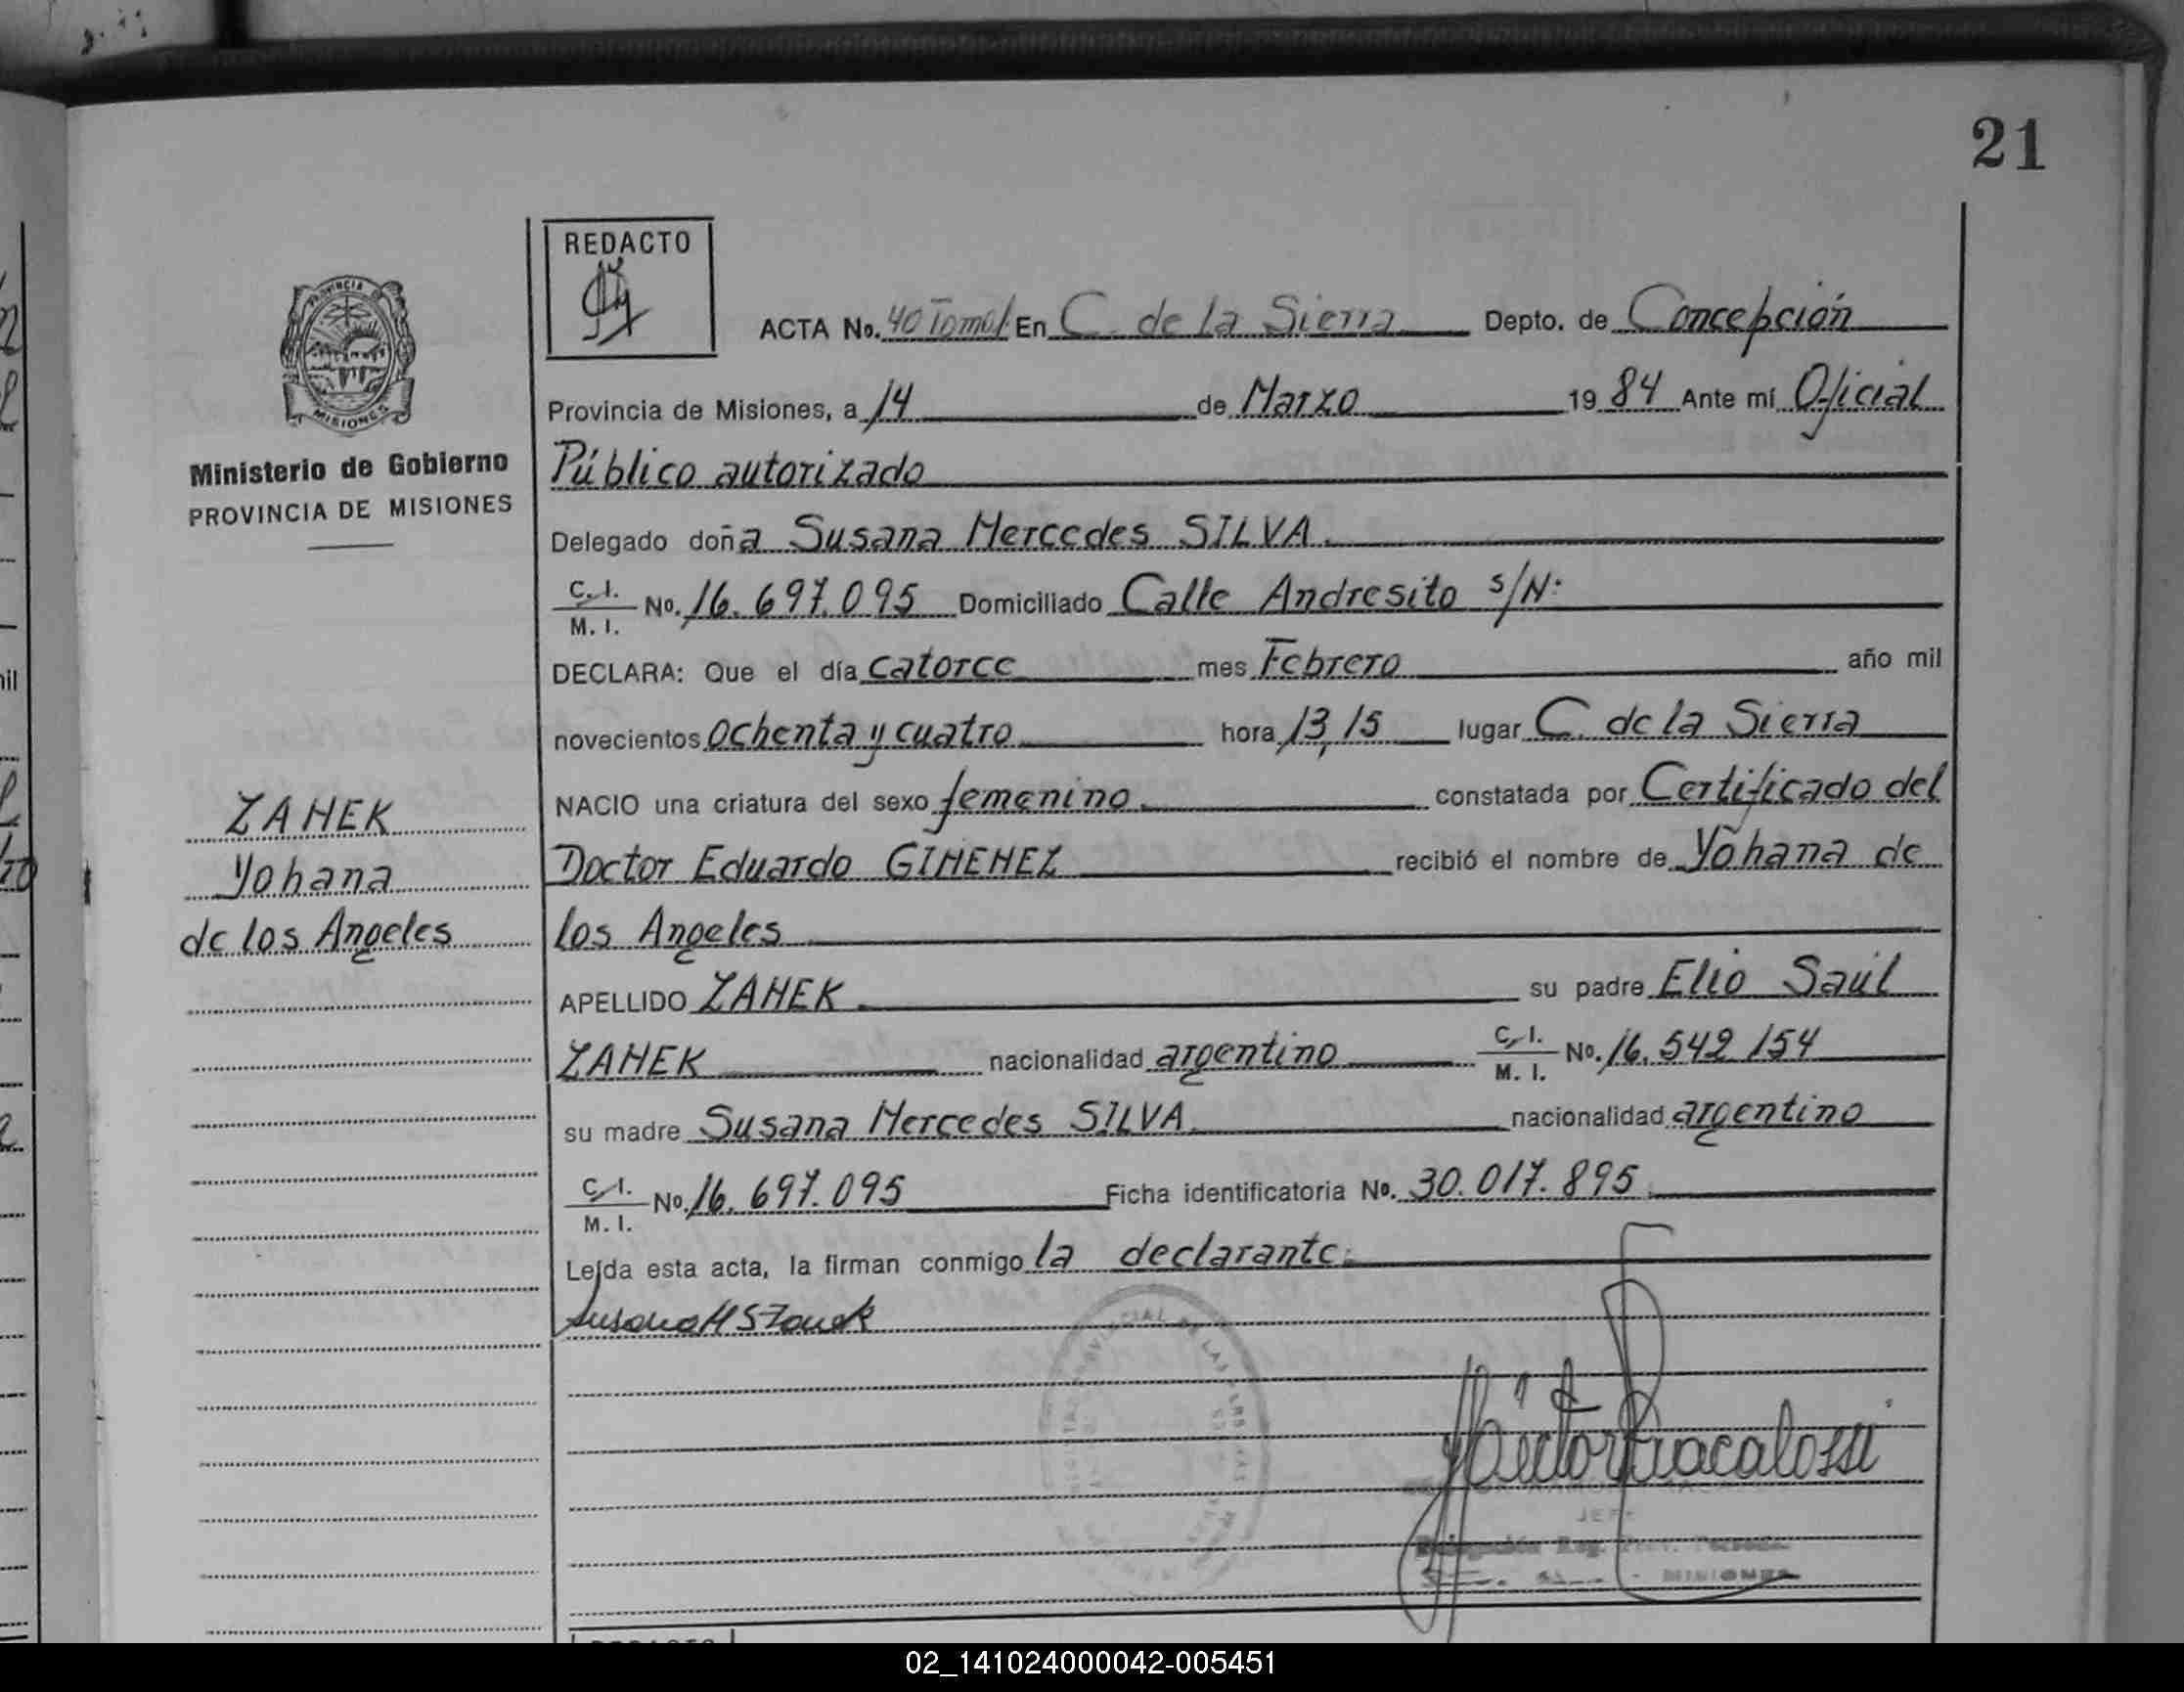 21
REDACTO
PROVINCIA
MISIONES
Ministerio de Gobierno
PROVINCIA DE MISIONES
ACTA No. 40 Tomo I En C. de la Sierra Depto. de Concepción
Provincia de Misiones, a 14 de Marzo 19 84 Ante mí Oficial
Público autorizado
Delegado doña Susana Mercedes SILVA.
C. I. M. I. No. 16.697.095 Domiciliado Calle Andresito s/N:
DECLARA: Que el día catorce mes Febrero año mil
novecientos ochenta y cuatro hora 13,15 lugar C. de la Sierra
NACIO una criatura del sexo femenino. constatada por Certificado del
Doctor Eduardo GIMENEZ recibió el nombre de Yohana de
los Angeles
APELLIDO ZANEK. su padre Elio Saúl
ZANEK nacionalidad argentino C. I. M. I. No. 16.542 154
su madre Susana Mercedes SILVA. nacionalidad argentino
C. I. M. I. No. 16.697.095 Ficha identificatoria No. 30.017.895.
Leída esta acta, la firman conmigo la declarante.
ZANEK
Yohana
de los Angeles
Susana M S Zanek
Héctor Fracalossi
JEFE
MISIONES
REDACTO
02_141024000042-005451